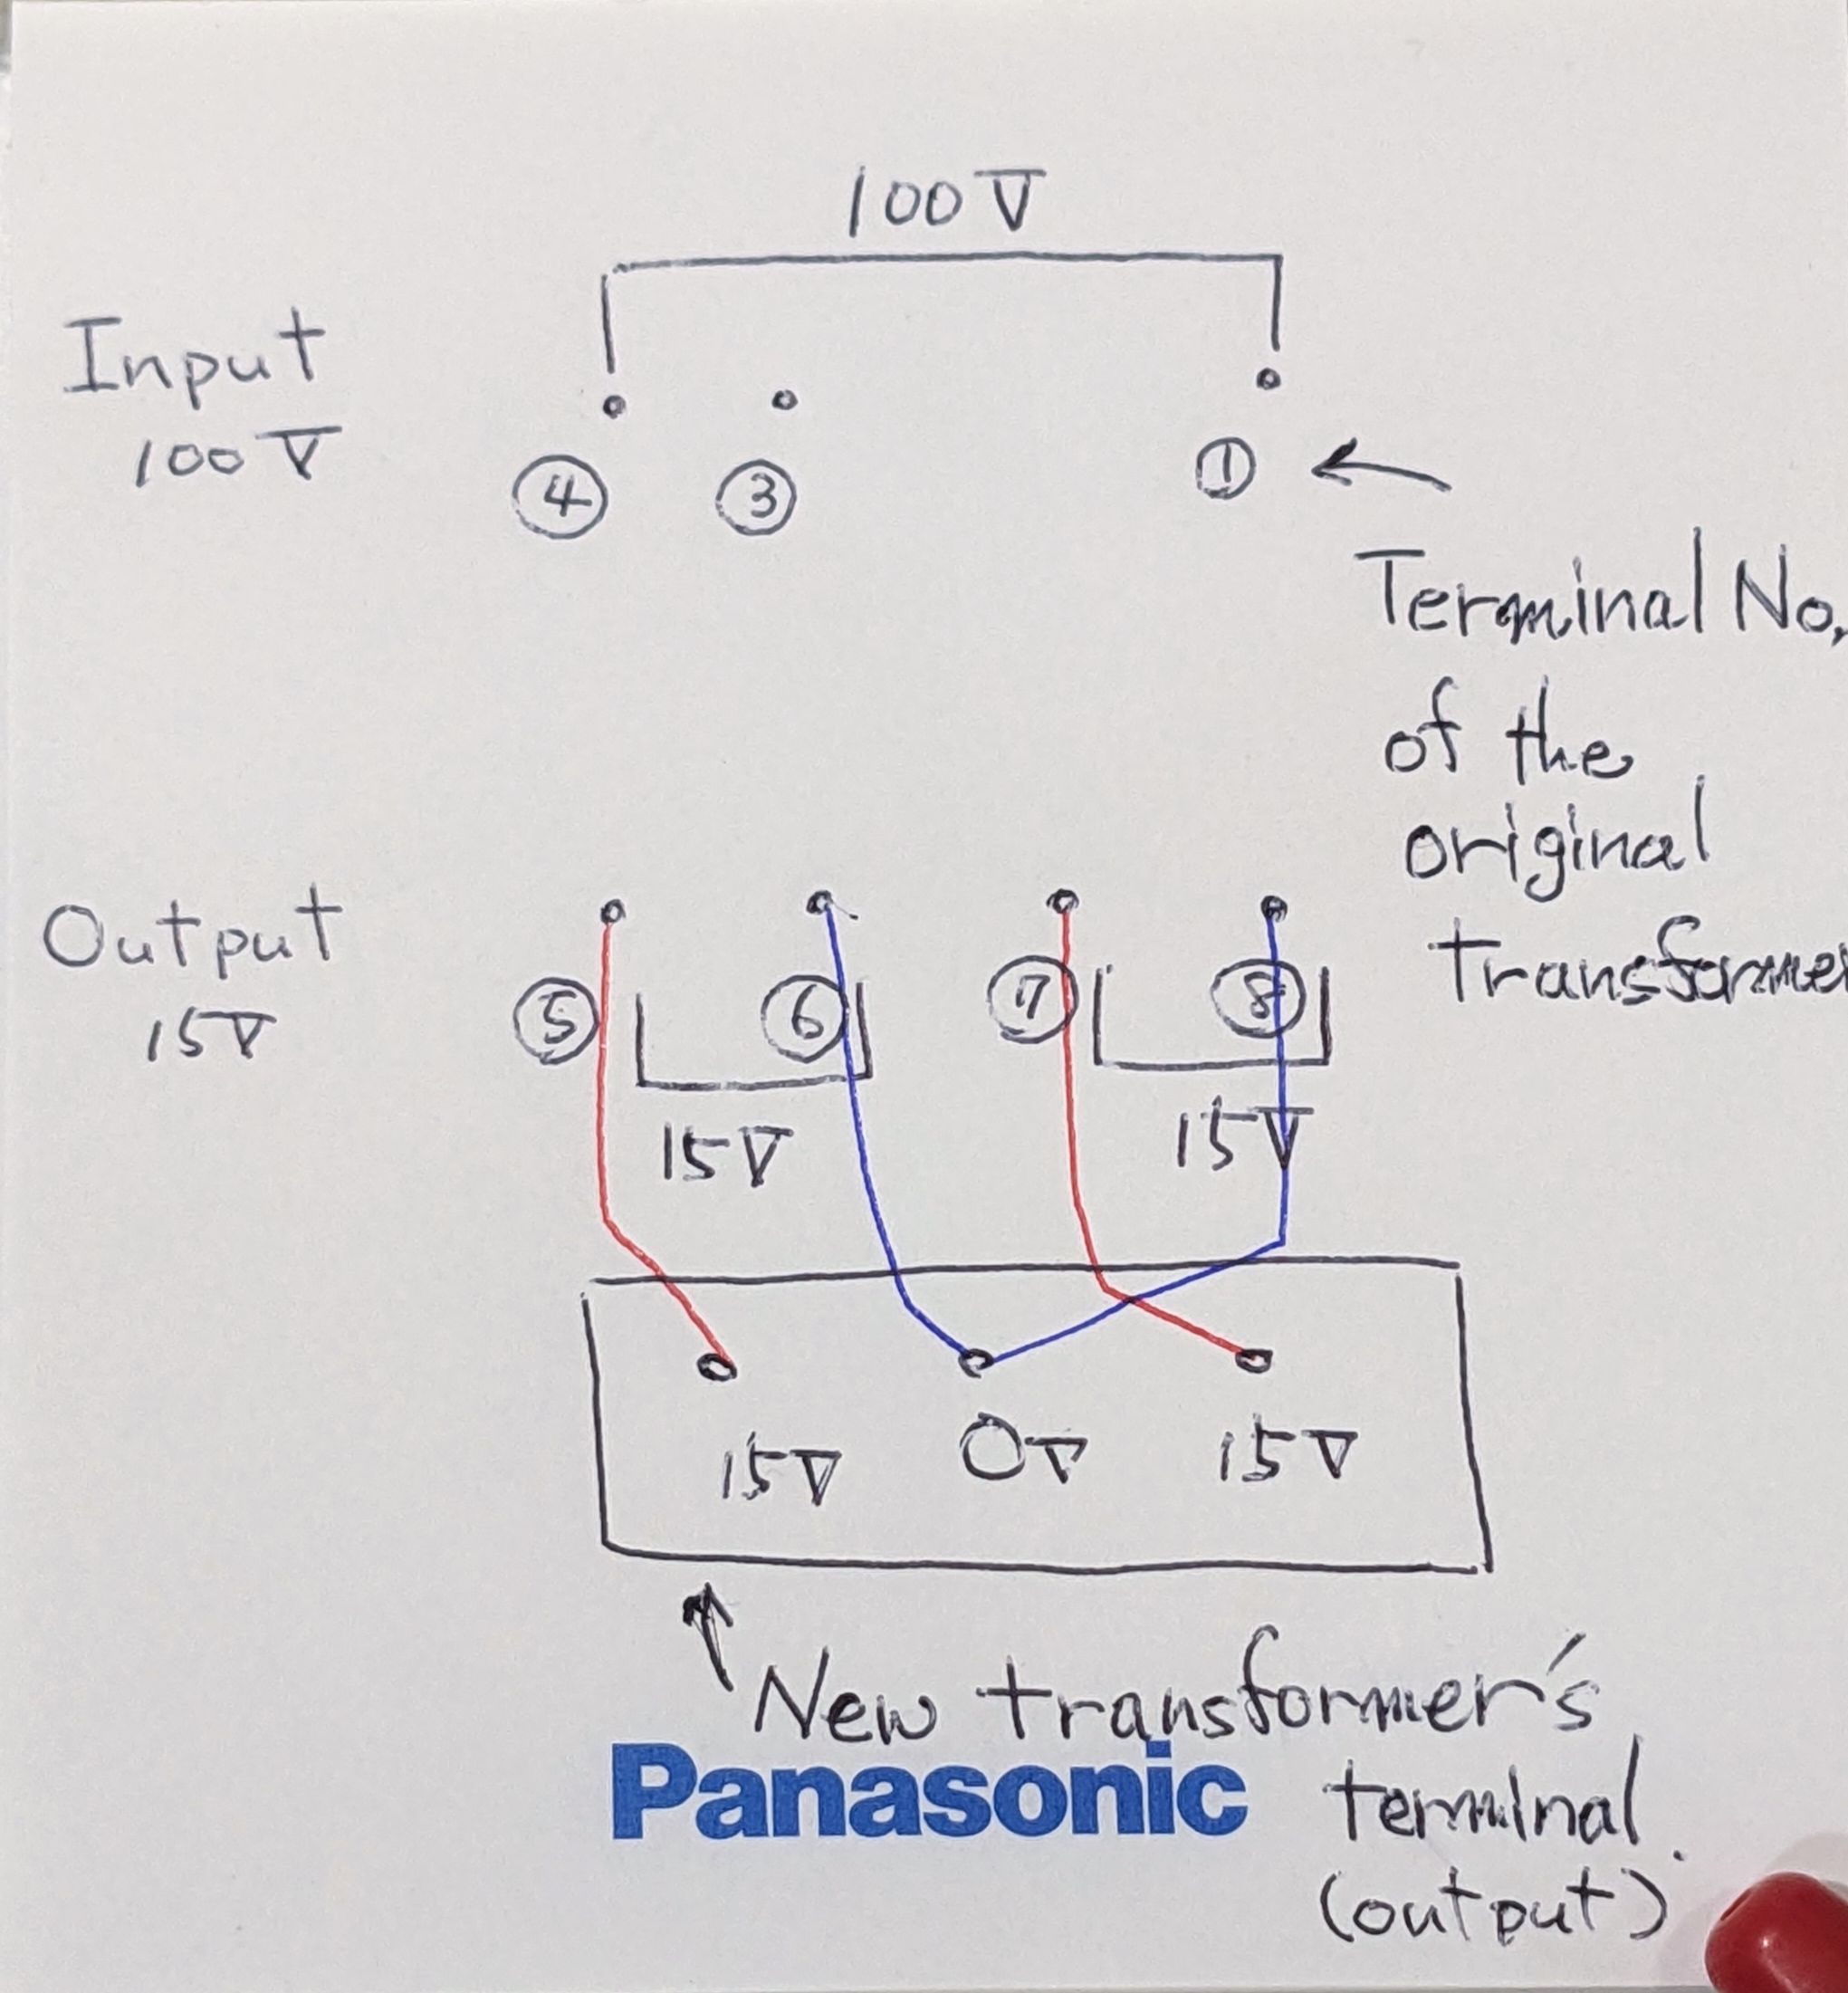 100V
Input
100V
④ ③ ①
Terminal No.
of the
original
transformer
Output
15V
⑤ ⑥ ⑦ ⑧
15V 15V
15V 0V 15V
New transformer's
terminal.
(output)
Panasonic